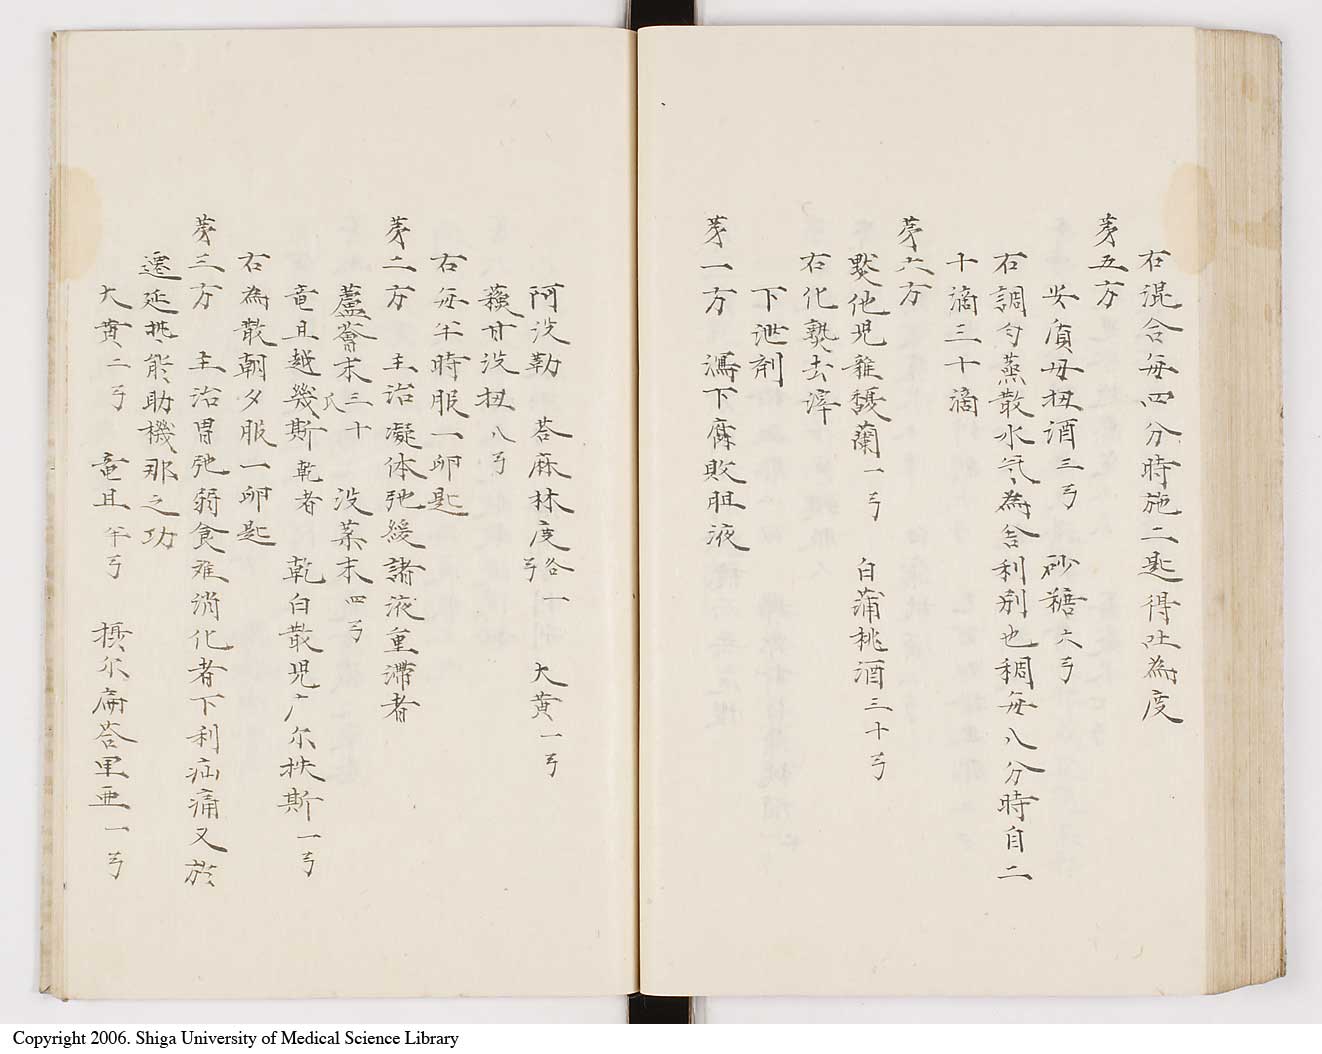 右混合毎四分時施二匙得吐為度
第五方
安質母扭酒三弓 砂糖六弓
右調匀蒸散水気為舎利別也稠毎八分時自二
十滴三十滴
第六方
默他児雜馥蘭一弓 白蒲桃酒三十弓
右化熟去滓
下泄剤
第一方 瀉下腐敗胆液
阿没勒 荅麻林度 一弓 大黄一弓
蘋甘没扭八弓
右毎半時服一卵匙
第二方 主治凝体弛緩諸液重滞者
蘆薈末三十 没薬末四弓
竜且越幾斯 乾者 乾白散児广尓扶斯一弓
右為散朝夕服一卵匙
第三方 主治胃弛弱食難消化者下利疝痛又於
遷延 能助機那之功
大黄二弓 竜且半弓 模尓扁荅里亜一弓
Copyright 2006. Shiga University of Medical Science Library